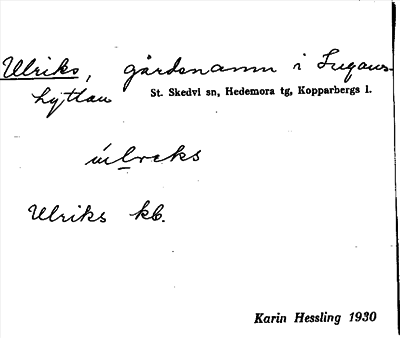 Ulriks, gårdsnamn i Ingvars-
hyttan St. Skedvi sn, Hedemora tg, Kopparbergs l.
úlreks
Ulriks kb.
Karin Hessling 1930